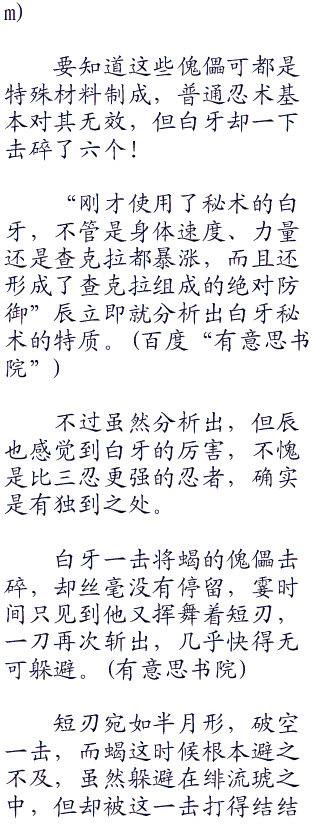 m)
要知道这些傀儡可都是
特殊材料制成，普通忍术基
本对其无效，但白牙却一下
击碎了六个！
“刚才使用了秘术的白
牙，不管是身体速度、力量
还是查克拉都暴涨，而且还
形成了查克拉组成的绝对防
御”辰立即就分析出白牙秘
术的特质。(百度“有意思书
院”)
不过虽然分析出，但辰
也感觉到白牙的厉害，不愧
是比三忍更强的忍者，确实
是有独到之处。
白牙一击将蝎的傀儡击
碎，却丝毫没有停留，霎时
间只见到他又挥舞着短刃，
一刀再次斩出，几乎快得无
可躲避。(有意思书院)
短刃宛如半月形，破空
一击，而蝎这时候根本避之
不及，虽然躲避在绯流琥之
中，但却被这一击打得结结